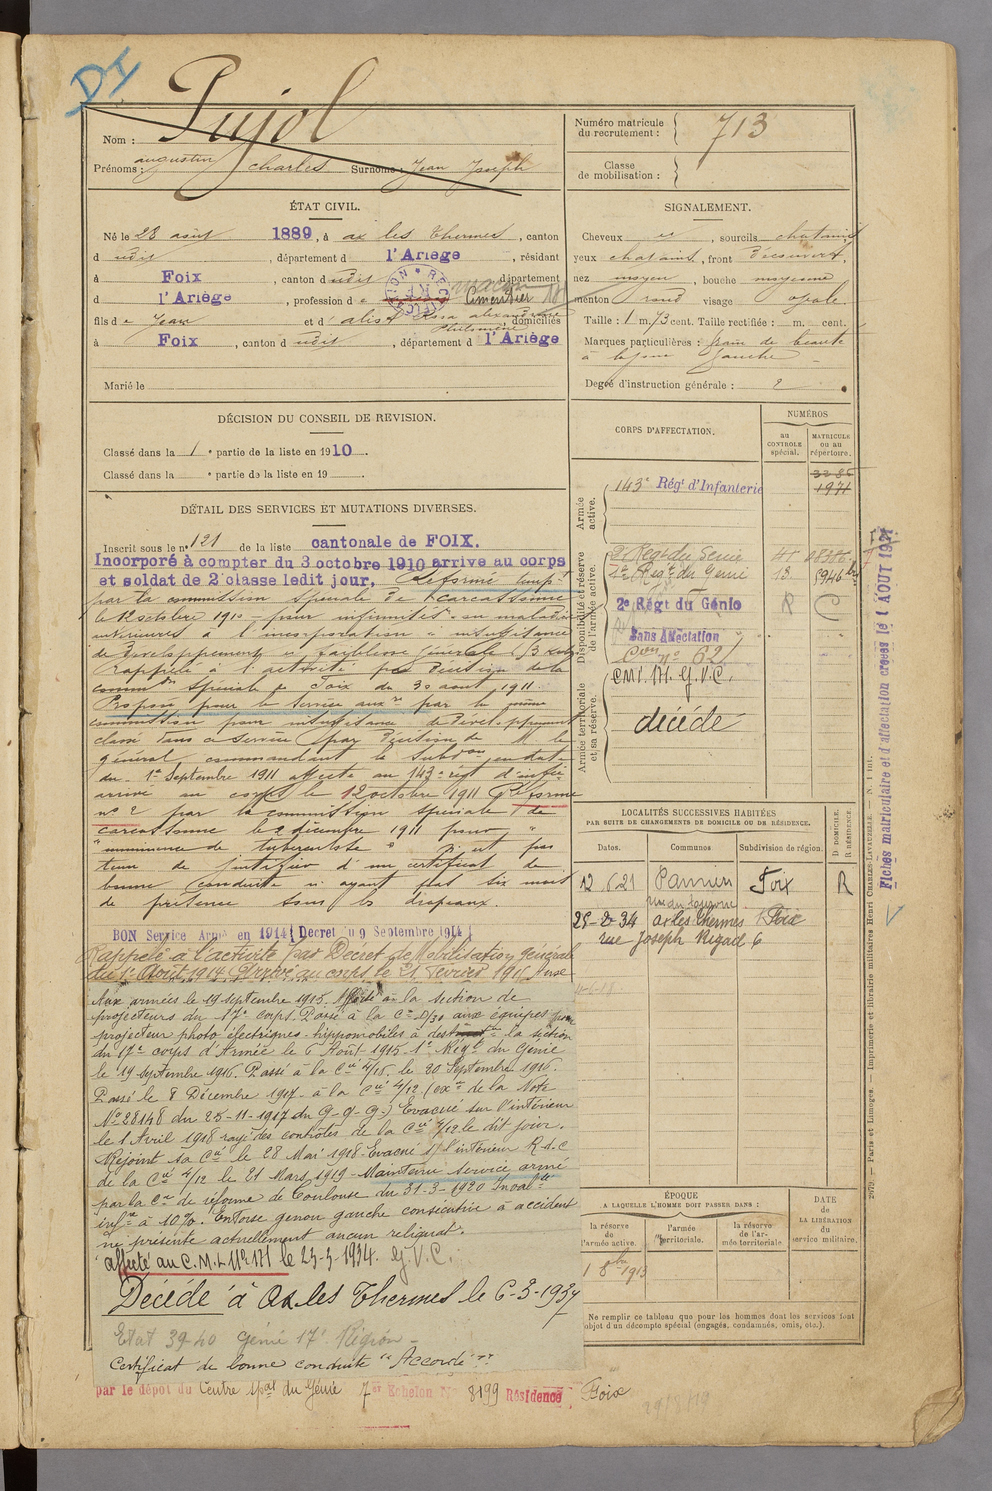 DI
Nom : Pujol
Prénoms : augustin charles Surnoms : Jean Joseph
Numéro matricule du recrutement : 713
Classe de mobilisation :
ÉTAT CIVIL.
Né le 28 août 1889, à ax les Thermes, canton
d udit, département d l'Ariège, résidant
à Foix, canton d udit, département
d l'Ariège, profession d e Cimentier
fils d e Jean et d' alist Rosa alexandrine Philomène, domiciliés
à Foix, canton d udit, département d l'Ariège
Marié le
SIGNALEMENT.
Cheveux et, sourcils chatains
yeux chatains, front découvert,
nez moyen, bouche moyenne
menton rond visage ovale.
Taille : 1 m. 73 cent. Taille rectifiée : m. cent.
Marques particulières : grain de beauté
à la joue gauche
Degré d'instruction générale : 2
DÉCISION DU CONSEIL DE REVISION.
Classé dans la 1e partie de la liste en 1910.
Classé dans la e partie de la liste en 19
CORPS D'AFFECTATION.
NUMÉROS
au CONTROLE spécial.
MATRICULE ou au répertoire.
Armée active.
143e Régt d'Infanterie
3285
1971
Disponibilité et réserve de l'armée active.
2e Régt du Génie
2e Régt du Génie 13. 5946
2e Régt du Génie R
Sans Affectation
Armée territoriale et sa réserve.
Con no 62
CMI. 171. G.V.C.
décédé
DÉTAIL DES SERVICES ET MUTATIONS DIVERSES.
Inscrit sous le no 121 de la liste cantonale de FOIX.
Incorporé à compter du 3 octobre 1910 arrive au corps
et soldat de 2e classe ledit jour, Réformé tempt
par la commission spéciale de Carcassonne
le octobre 1910 pour infirmités ou maladies
antérieures à l'incorporation "insuffisance
de développement et faiblesse générale
Rappelé à l'activité par décision de la
comm on spéciale de Foix du 30 août 1911.
Proposé pour le service auxre par la même
commission pour insuffisance de développement
classé dans ce service par décision de M le
général commandant la subdvon en date
du 1er septembre 1911 affecté au 143e régt d'infie
arrivé au corps le 12 octobre 1911 Réformé
no 2 par la commission spéciale de
carcassonne le 2 décembre 1911 pour
"imminence de tuberculose" N'est pas
tenu de justifier d'un certificat de
bonne conduite n'ayant pas six mois
de présence sous les drapeaux.
BON Service Armé en 1914 (Decret du 9 Septembre 1914)
Rappelé à l'activité par Décret de Mobilisation générale
du 1er Août 1914. Arrivé au corps le 21 février 1915
Aux armées le 19 septembre 1915. Affecté à la section de
projecteurs du 17e corps. Passé à la Cie aux équipes pour
projecteur photo électriques hippomobiles à destnon de la section
du 17e corps d'Armée le 6 Août 1915 1er Régt du Génie
le 19 septembre 1916. Passé à la Cie 4/16, le 20 Septembre 1916.
Passé le 8 Décembre 1917 à la Cie 4/12 (exon de la Note
No 28148 du 25-11-1917 du G.Q.G.) Évacué sur l'intérieur
le 1 Avril 1918 rayé des contrôles de la Cie 4/12 le dit jour.
Rejoint sa Cie le 28 Mai 1918. Évacué s/ l'intérieur R.d.C
de la Cie 4/12 le 21 Mars 1919. Maintenu service armé
par la Con de réforme de Toulouse du 31-3-1920 Invalté
infre à 10%. Entorse genou gauche consécutive à accident
ne présente actuellement aucun reliquat.
affecté au C.M.I. No 171 le 23-3-1934. G.V.C.
Décédé à Ax les Thermes le 6-3-1937
Etat 39-40 Génie 17e Région
Certificat de bonne conduite "Accordé".
par le dépôt du Centre Mal du Génie 7er Echelon No 8199 Résidence Foix
29/8/19
LOCALITÉS SUCCESSIVES HABITÉES
PAR SUITE DE CHANGEMENTS DE DOMICILE OU DE RÉSIDENCE.
Dates. Communes Subdivision de région. D. DOMICILE. R. RÉSIDENCE.
12.6.21 Pamiers Foix R
25-2-34 ax les Thermes Foix
rue Joseph Rigal 6
ÉPOQUE
A LAQUELLE L'HOMME DOIT PASSER DANS :
la réserve de l'armée active.
l'armée territoriale.
la réserve de l'armée territoriale
DATE de LA LIBÉRATION du service militaire.
1 8bre 1913
Ne remplir ce tableau que pour les hommes dont les services font
l'objet d'un décompte spécial (engagés, condamnés, omis, etc.).
2679. — Paris et Limoges. — Imprimerie et librairie militaires Henri CHARLES-LAVAUZELLE. — N. 1 int.
Fiches matriculaire et d'affectation créées le 1 AOUT 1921